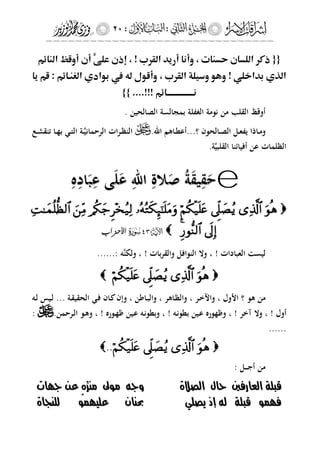 المجلد الثاني : البنات الأول : ٢٠
{{ ذكر اللسان حسنات ، وأنا أريد القرب ! ، إذن عليَّ أن أوقظ النائم
الذي بداخلي ! وهو وسيلة القرب ، وأقول له في بوادي الغنائم : قم يا
نـــــــائم !!!.... }}
أوقظ القلب من نومة الغفلة بمجالسة الصالحين .
وماذا يفعل الصالحون ؟...أعطاهم الله النظرات الرحمانيَّة التي بها تنقشع
الظلمات عن أفيائنا القلبيَّة.
حَقِيقَةُ صَلَاةِ اللهِ عَلَى عِبَادِهِ
﴿ هُوَ ٱلَّذِى يُصَلِّى عَلَيْكُمْ وَمَلَٰٓئِكَتُهُۥ لِيُخْرِجَكُم مِّنَ ٱلظُّلُمَٰتِ
إِلَى ٱلنُّورِ ﴾ الآية: ٤٣ سورة الأحزاب
ليست العبادات ! ، ولا النوافل والقربات ! ، ولكنَّه :......
﴿ هُوَ ٱلَّذِى يُصَلِّى عَلَيْكُمْ ﴾
من هو ؟ الأول ، والآخر ، والظاهر ، والباطن ، وإن كان في الحقيقة ... ليس له
أول ! ، ولا آخر ! ، وظهوره عين بطونه ! ، وبطونه عين ظهوره ! ، وهو الرحمن :
......
﴿ هُوَ ٱلَّذِى يُصَلِّى عَلَيْكُمْ..﴾
من أجـل :
قبلة العارفين حال الصلاة وجه مولى منزه عن جهات
فهمو قبلة له إذ يصلي بحنان عليهمو للنجاة